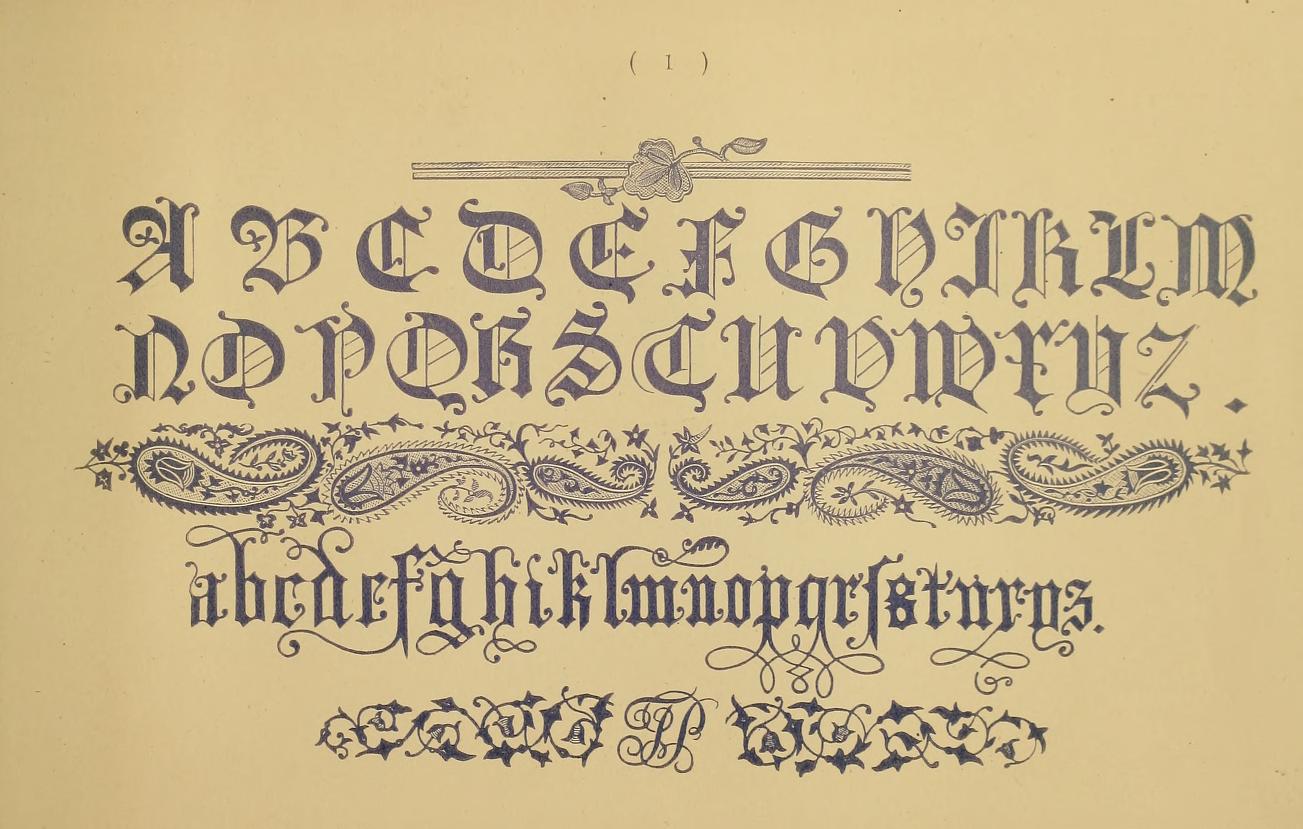 ( 1 )
A B C D E F G H I K L M
N O P Q R S T U V W X Y Z .
abcdefghiklmnopqrſstuxyz.